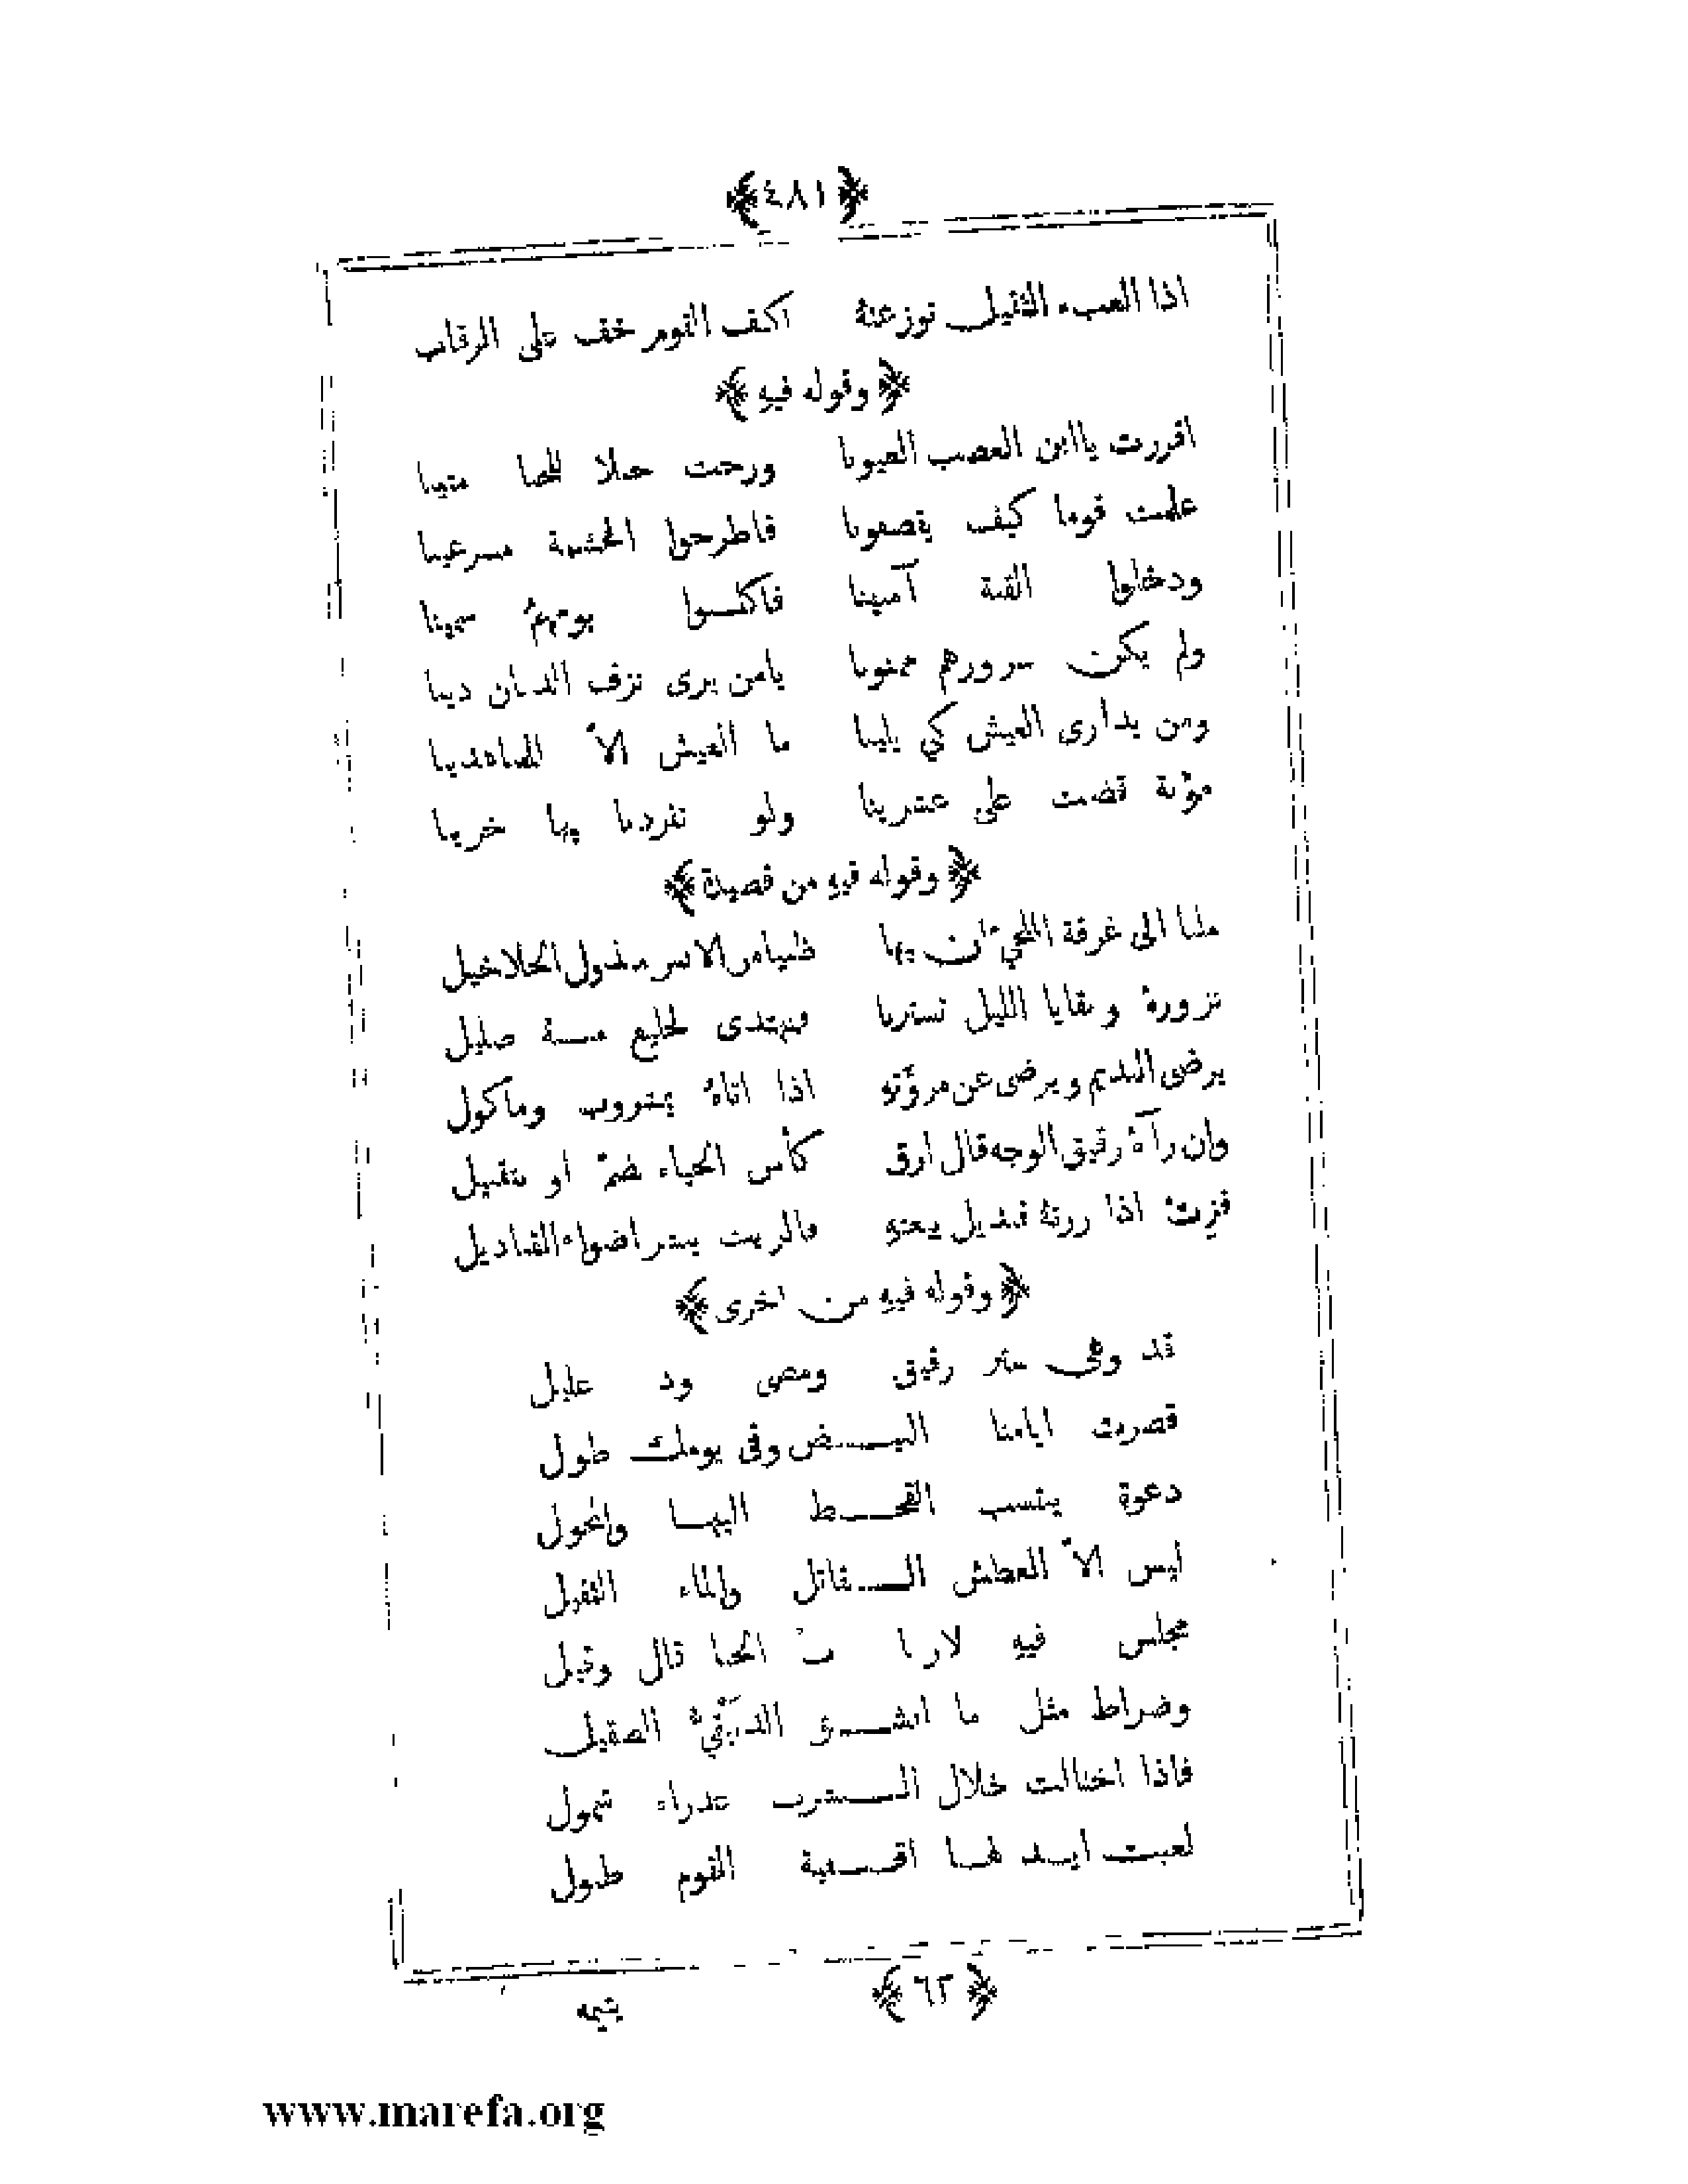 ﴿٤٨١﴾
اذا العبء الثقيل توزعته اكف القوم خف على الرقاب
﴿وقوله فيه﴾
اقررت يا ابن العصب العيونا ورحت
علمت قوما كيف يقصفونا فاطرحوا الحشمة مسرعينا
ودخلوا القبة آمينا
ولم يكن سرورهم ممنونا يامن يرى نزف الدنان دينا
ومن يدارى العيش كي يلينا ما العيش الاّ
مؤنة قضت على عشرينا ولو تفردنا بها خرينا
﴿وقوله فيه من قصيدة﴾
ملنا الى غرفة بها الخلاخيل
نزوره وبقايا الليل تسترنا
يرضى النديم ويرضى عن مروّته اذا اتاه بمشروب وماكول
وان رآه رقيق الوجه قال ارق كأس الحياء بضمّ او بتقبيل
اذا قنديل بيعته اضواء القناديل
﴿وقوله فيه من اخرى﴾
قد وفى رقيق ومضى ود عليل
قصرت ايامنا البيـض وفى يومك طول
دعوة ينسب القحـط اليها والمحول
ليس الاّ العطش الـقاتل والماء الثقيل
مجلس فيه لاربا ب الخنا قال وقيل
وضراط مثل ما انشـق الدبيقيّ الصقيل
فاذا اختالت خلال الـشرب عذراء شمول
لعبت ايـد لهـا اقـفية القوم طبول
﴿٦٣﴾
يتيمه
www.marefa.org